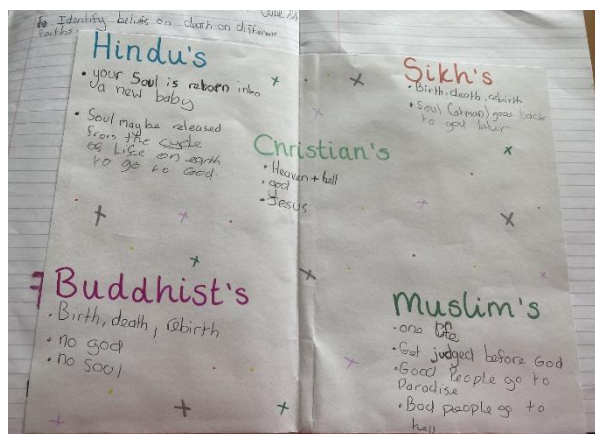 to Identify beliefs on death on different
faiths.
Hindu's
• your Soul is reborn into
a new baby
• Soul may be released
from the cycle
of Life on earth
to go to God
Christian's
• Heaven + hell
• god
• Jesus
Sikh's
• Birth, death, rebirth
• Soul (atman) goes back
to god later
Buddhist's
• Birth, death, rebirth
• no god
• no soul
Muslim's
• one life
• Get judged before God
• Good People go to
Paradise
• Bad people go to
hell